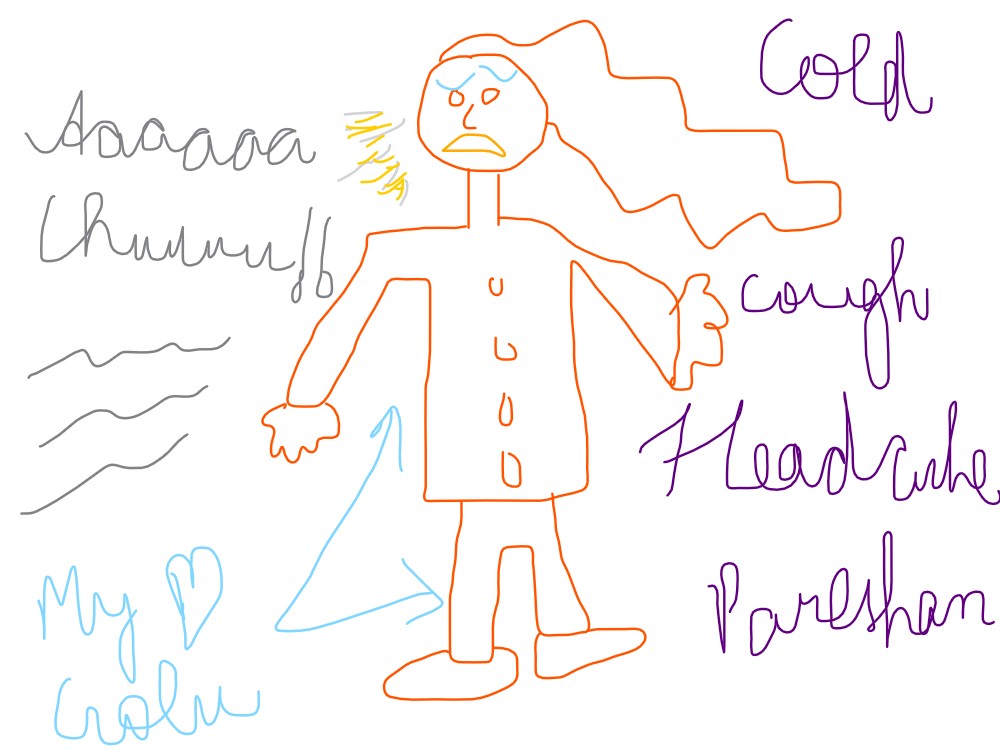 Aaaaaa
Chuuuu!!
My ♡
Golu
Cold
cough
Headache
Pareshan